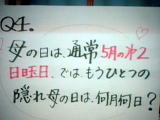 Q4.
母の日は、通常5月の第2
日曜日。では、もうひとつの
隠れ母の日は、何月何日?